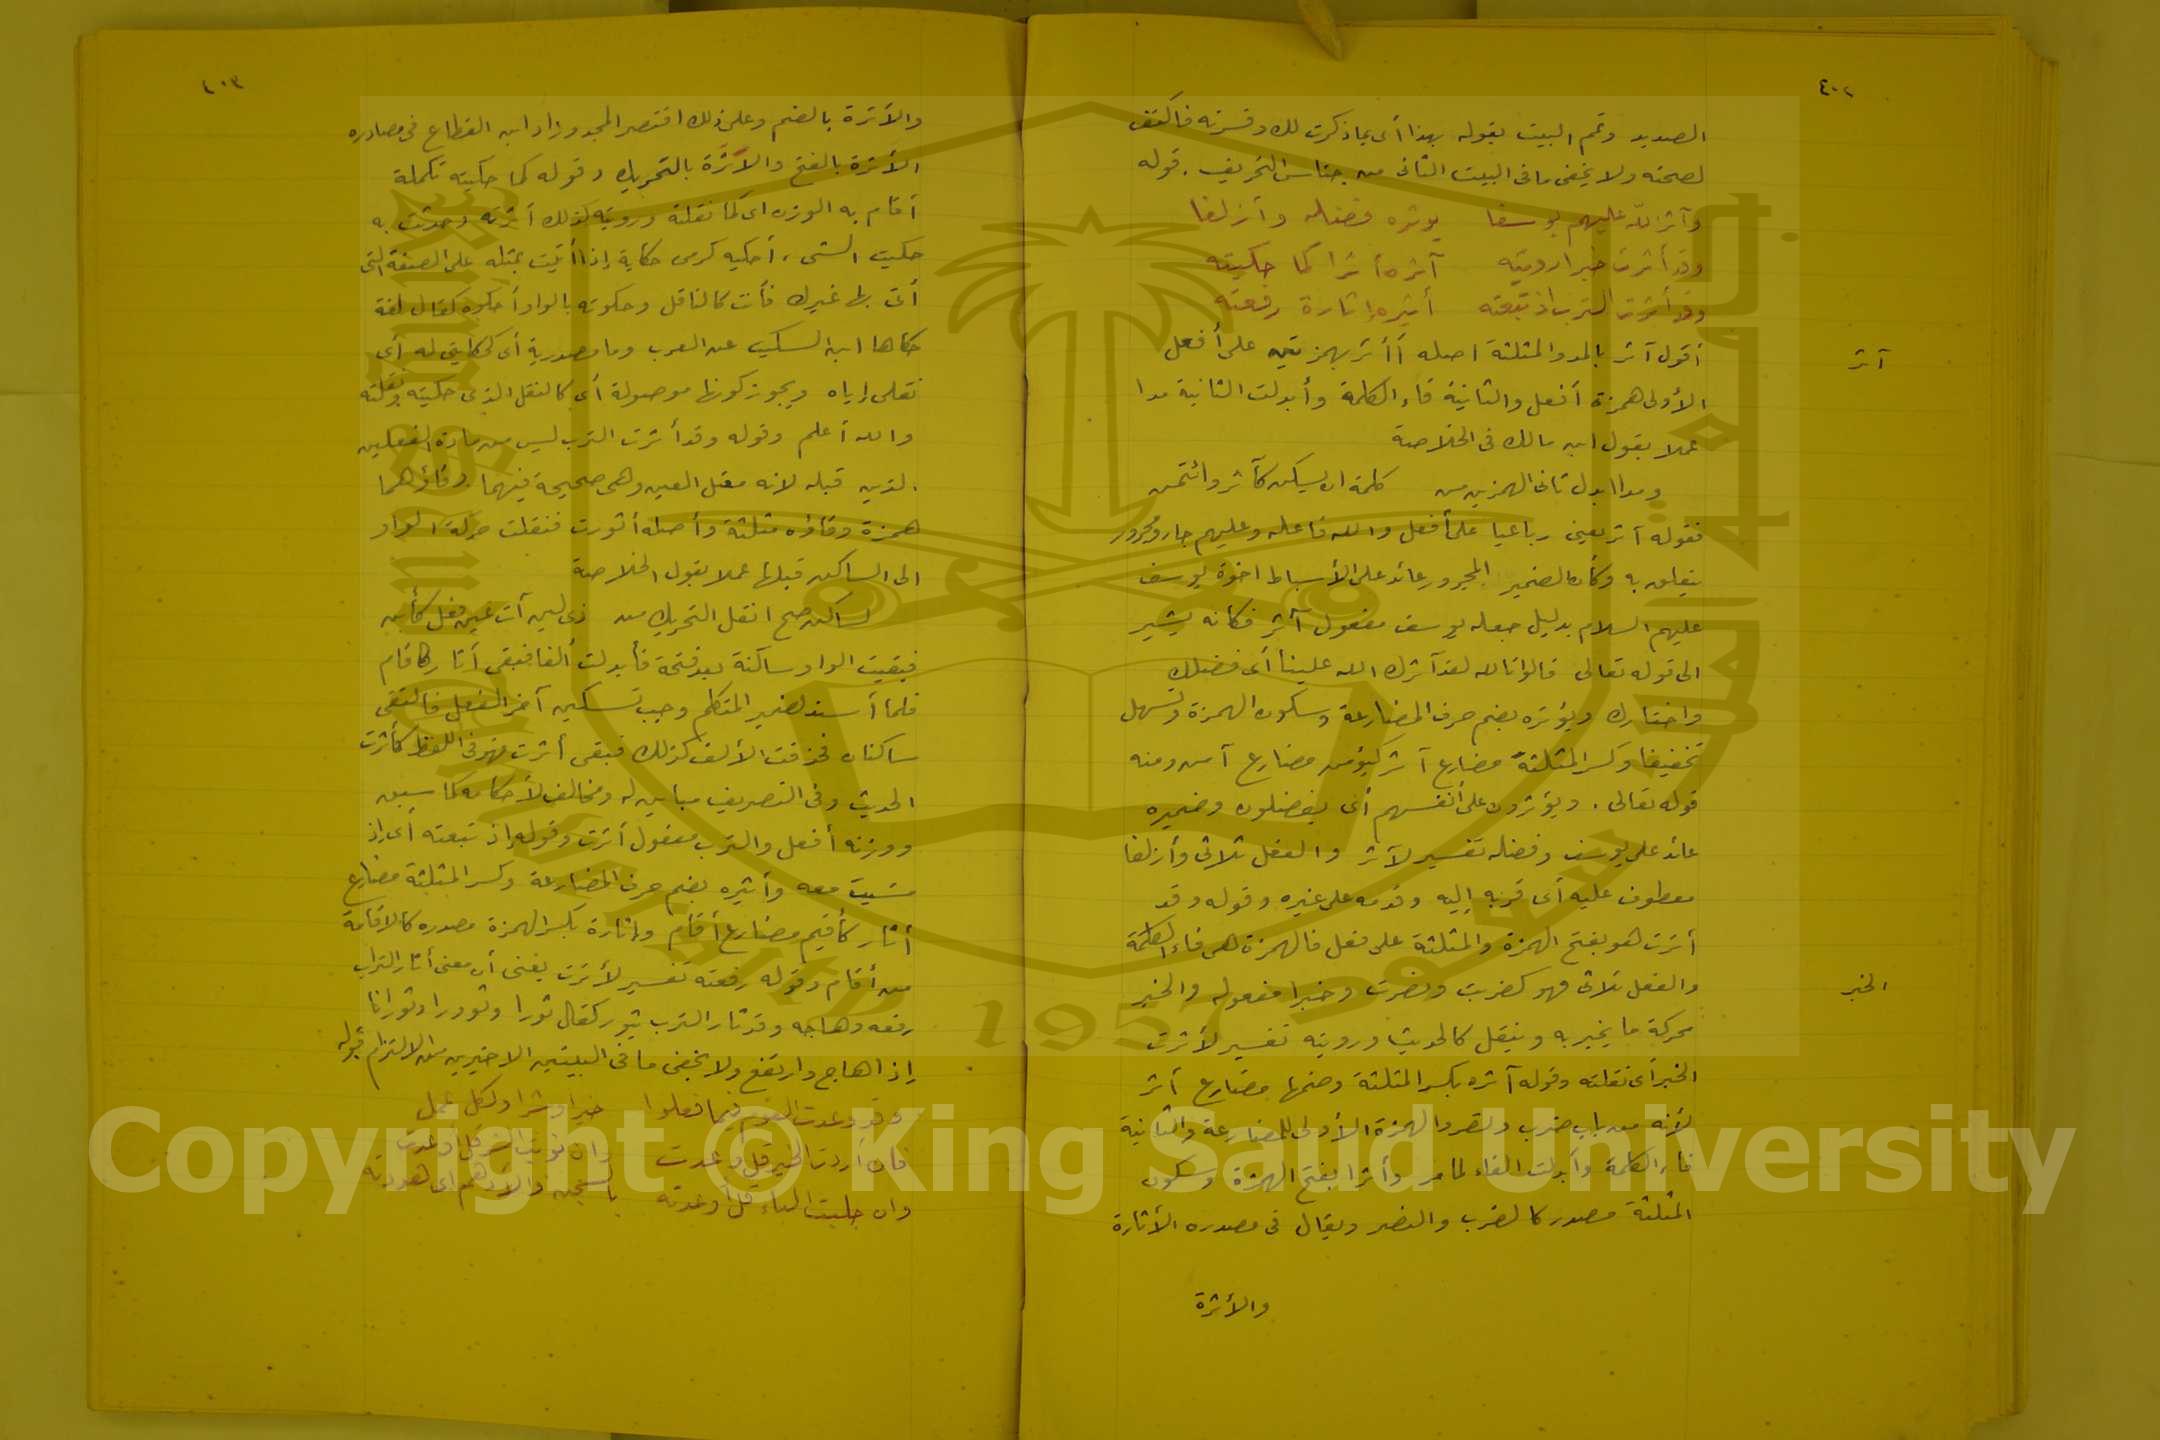 ٤٠٢
الصديد وتمم البيت بقوله بهذا أى بما ذكرت لك وفسرته فاكتف
لصحته ولا يخفى ما فى البيت الثانى من جناس التحريف . قوله
وآثر الله عليهم يوسفا يوثره فضله وأزلفا
وقد أثرت خبرا رويته آثره أثرا كما حكيته
وقد أثرت الترب اذ تبعته أثيره إثارة رفعته
آثر
أقول آثر بالمد والمثلثة اصله أأثر بهمزتين على أفعل
الأولى همزة أفعل والثانية فاء الكلمة وأبدلت الثانية مدا
عملا بقول ابن مالك فى الخلاصة
ومدا ابدل ثانى الهمزين من كلمة ان يسكن كآثر وائتمن
فقوله آثر يعنى رباعيا على أفعل والله فاعله وعليهم جار ومجرور
يتعلق به وكأن الضمير المجرور عائد على الأسباط اخوة يوسف
عليهم السلام بدليل جعله يوسف مفعول آثر فكانه يشير
الى قوله تعالى قالوا تالله لقد آثرك الله علينا أى فضلك
واختارك ويؤثره بضم حرف المضارعة وسكون الهمزة وتسهل
تخفيفا وكسر المثلثة مضارع آثر كيؤمن مضارع آمن ومنه
قوله تعالى . ويؤثرون على أنفسهم أى يفضلون وضميره
عائد على يوسف وفضله تفسير لآثر والفعل ثلاثى وأزلفا
معطوف عليه أى قربه إليه وقدمه على غيره وقوله وقد
أثرت هو بفتح الهمزة والمثلثة على فعل فالهمزة هى فاء الكلمة
الخبر
والفعل ثلاثى فهو كضرب ونصرت وخبرا مفعوله والخبر
محركة ما يخبر به وينقل كالحديث ورويته تفسير لأثرت
الخبر أى نقلته وقوله آثره بكسر المثلثة وضمها مضارع أثر
لأنه من باب ضرب ونصر والهمزة الأولى للمضارعة والثانية
فاء الكلمة وأبدلت الفاء لما مر وأثرا بفتح الهمزة وسكون
المثلثة مصدر كالضرب والنصر ويقال فى مصدره الأثارة
والأثرة
٤٠٣
والأثرة بالضم وعلى ذلك اقتصر المجد وزاد ابن القطاع فى مصادره
الأثرة بالفتح والأثرة بالتحريك وقوله كما حكيته تكملة
أقام به الوزن اى كما نقلته ورويته كذلك أثرته وحدثت به
حكيت الشىء أحكيه كرمى حكاية إذا أتيت بمثله على الصفة التى
أتى بها غيرك فأنت كالناقل وحكوته بالواو أحكوه كقال لغة
حكاها ابن السكيت عن العرب وما مصدرية أى كحكايتى له أى
نقلى إياه ويجوز كونها موصولة أى كالنقل الذى حكيته ونقلته
والله أعلم وقوله وقد أثرت الترب ليس من مادة الفعلين
الذين قبله لانه معتل العين وهى صحيحة فيهما وفاؤهما
همزة وفاؤه مثلثة وأصله أثورت فنقلت حركة الواو
الى الساكن قبلها عملا بقول الخلاصة
لساكن صح انقل التحريك من ذى لين آت عين فعل كأبن
فبقيت الواو ساكنة بعد فتحة فأبدلت ألفا فبقى أثار كاقام
فلما أسند لضمير المتكلم وجب تسكين آخر الفعل فالتقى
ساكنان فحذفت الألف كذلك فبقى أثرت فهو فى اللفظ كأثرت
الحديث وفى التصريف مباين له ومخالف لأحكامه كما سبق
ووزنه أفعل والترب مفعول أثرت وقوله إذ تبعته أى إذ
مشيت معه وأثيره بضم حرف المضارعة وكسر المثلثة مضارع
أثار كأقيم مضارع أقام واثارة بكسر الهمزة مصدره كالاقامة
من أقام وقوله رفعته تفسير لأثرت يعنى أن معنى أثار التراب
رفعه وهاجه وقد ثار الترب يثور كقال ثورا وثوورا وثورانا
إذا هاج وارتفع ولا يخفى ما فى البيتين الاخيرين من الالتزام قوله
وقد وعدت القوم فيما فعلوا خيرا وشرا ولكل عمل
فان أردت الخير قل وعدت وان نويت الشر قل أوعدت
وان جلبت الباء قل أوعدته بالسجن والأدهم اى هددته
Copyright © King Saud University
1957